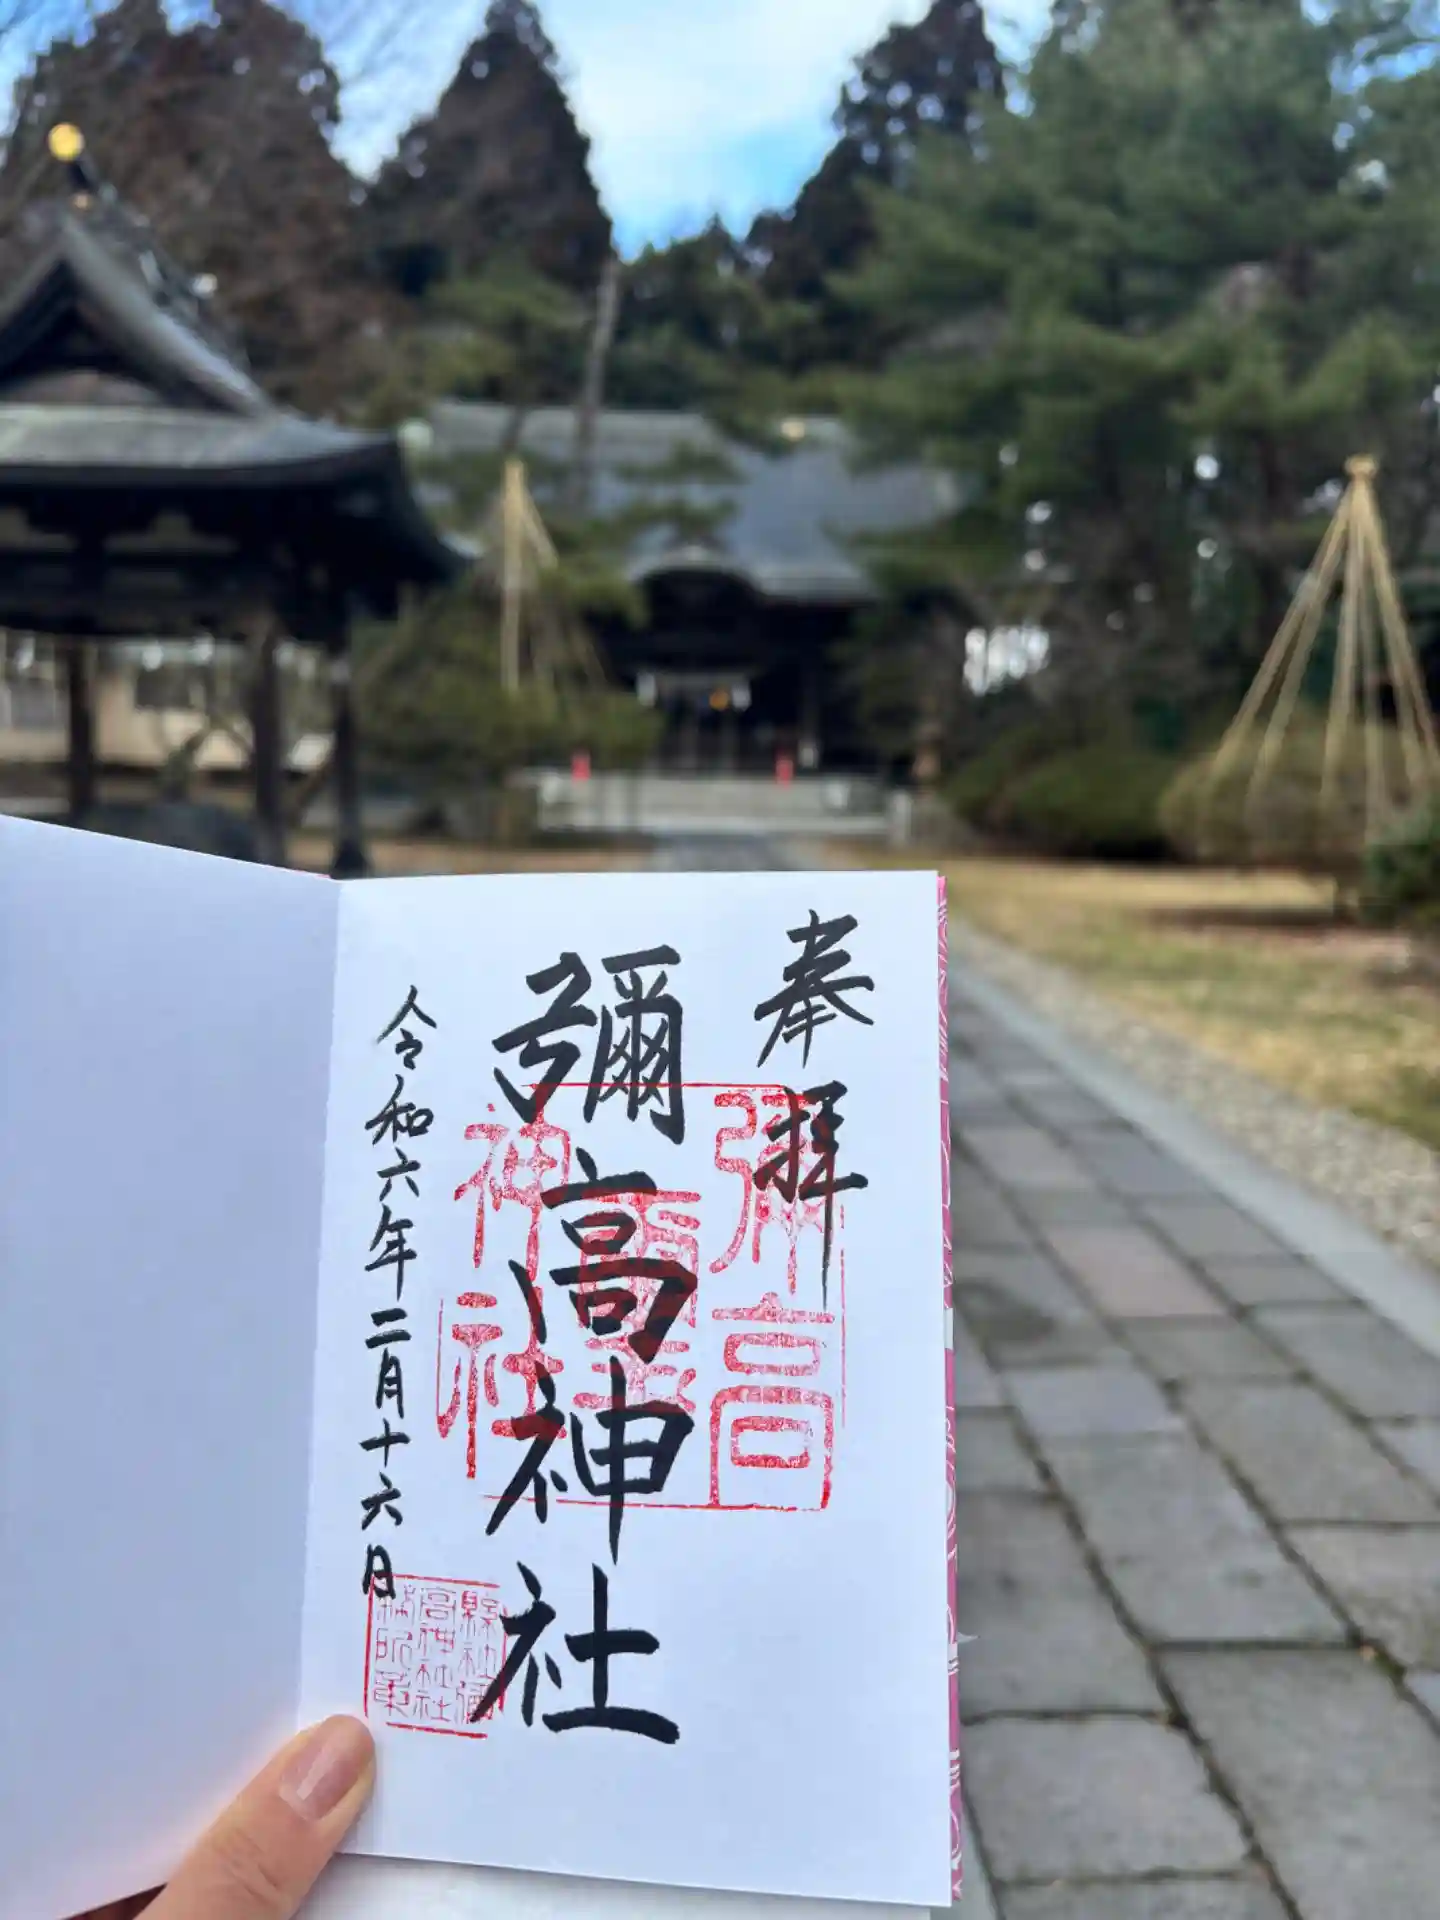 奉拝
彌高神社
令和六年二月十六日
彌高
神社
縣社彌
高神社社